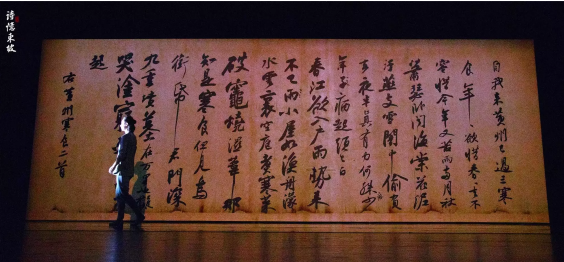 诗忆东坡
自我來黃州已過三寒
食年〻欲惜春〻去不
容惜今年又苦雨兩月秋
蕭瑟臥聞海棠花泥
汙燕支雪闇中偷負
去夜半真有力何殊少
年子病起頭已白
春江欲入戶雨勢來
不已雨小屋如漁舟濛〻
水雲裏空庖煮寒菜
破竈燒濕葦那
知是寒食但見烏
銜帋君門深
九重墳墓在
哭塗窮
起
右黃州寒食二首